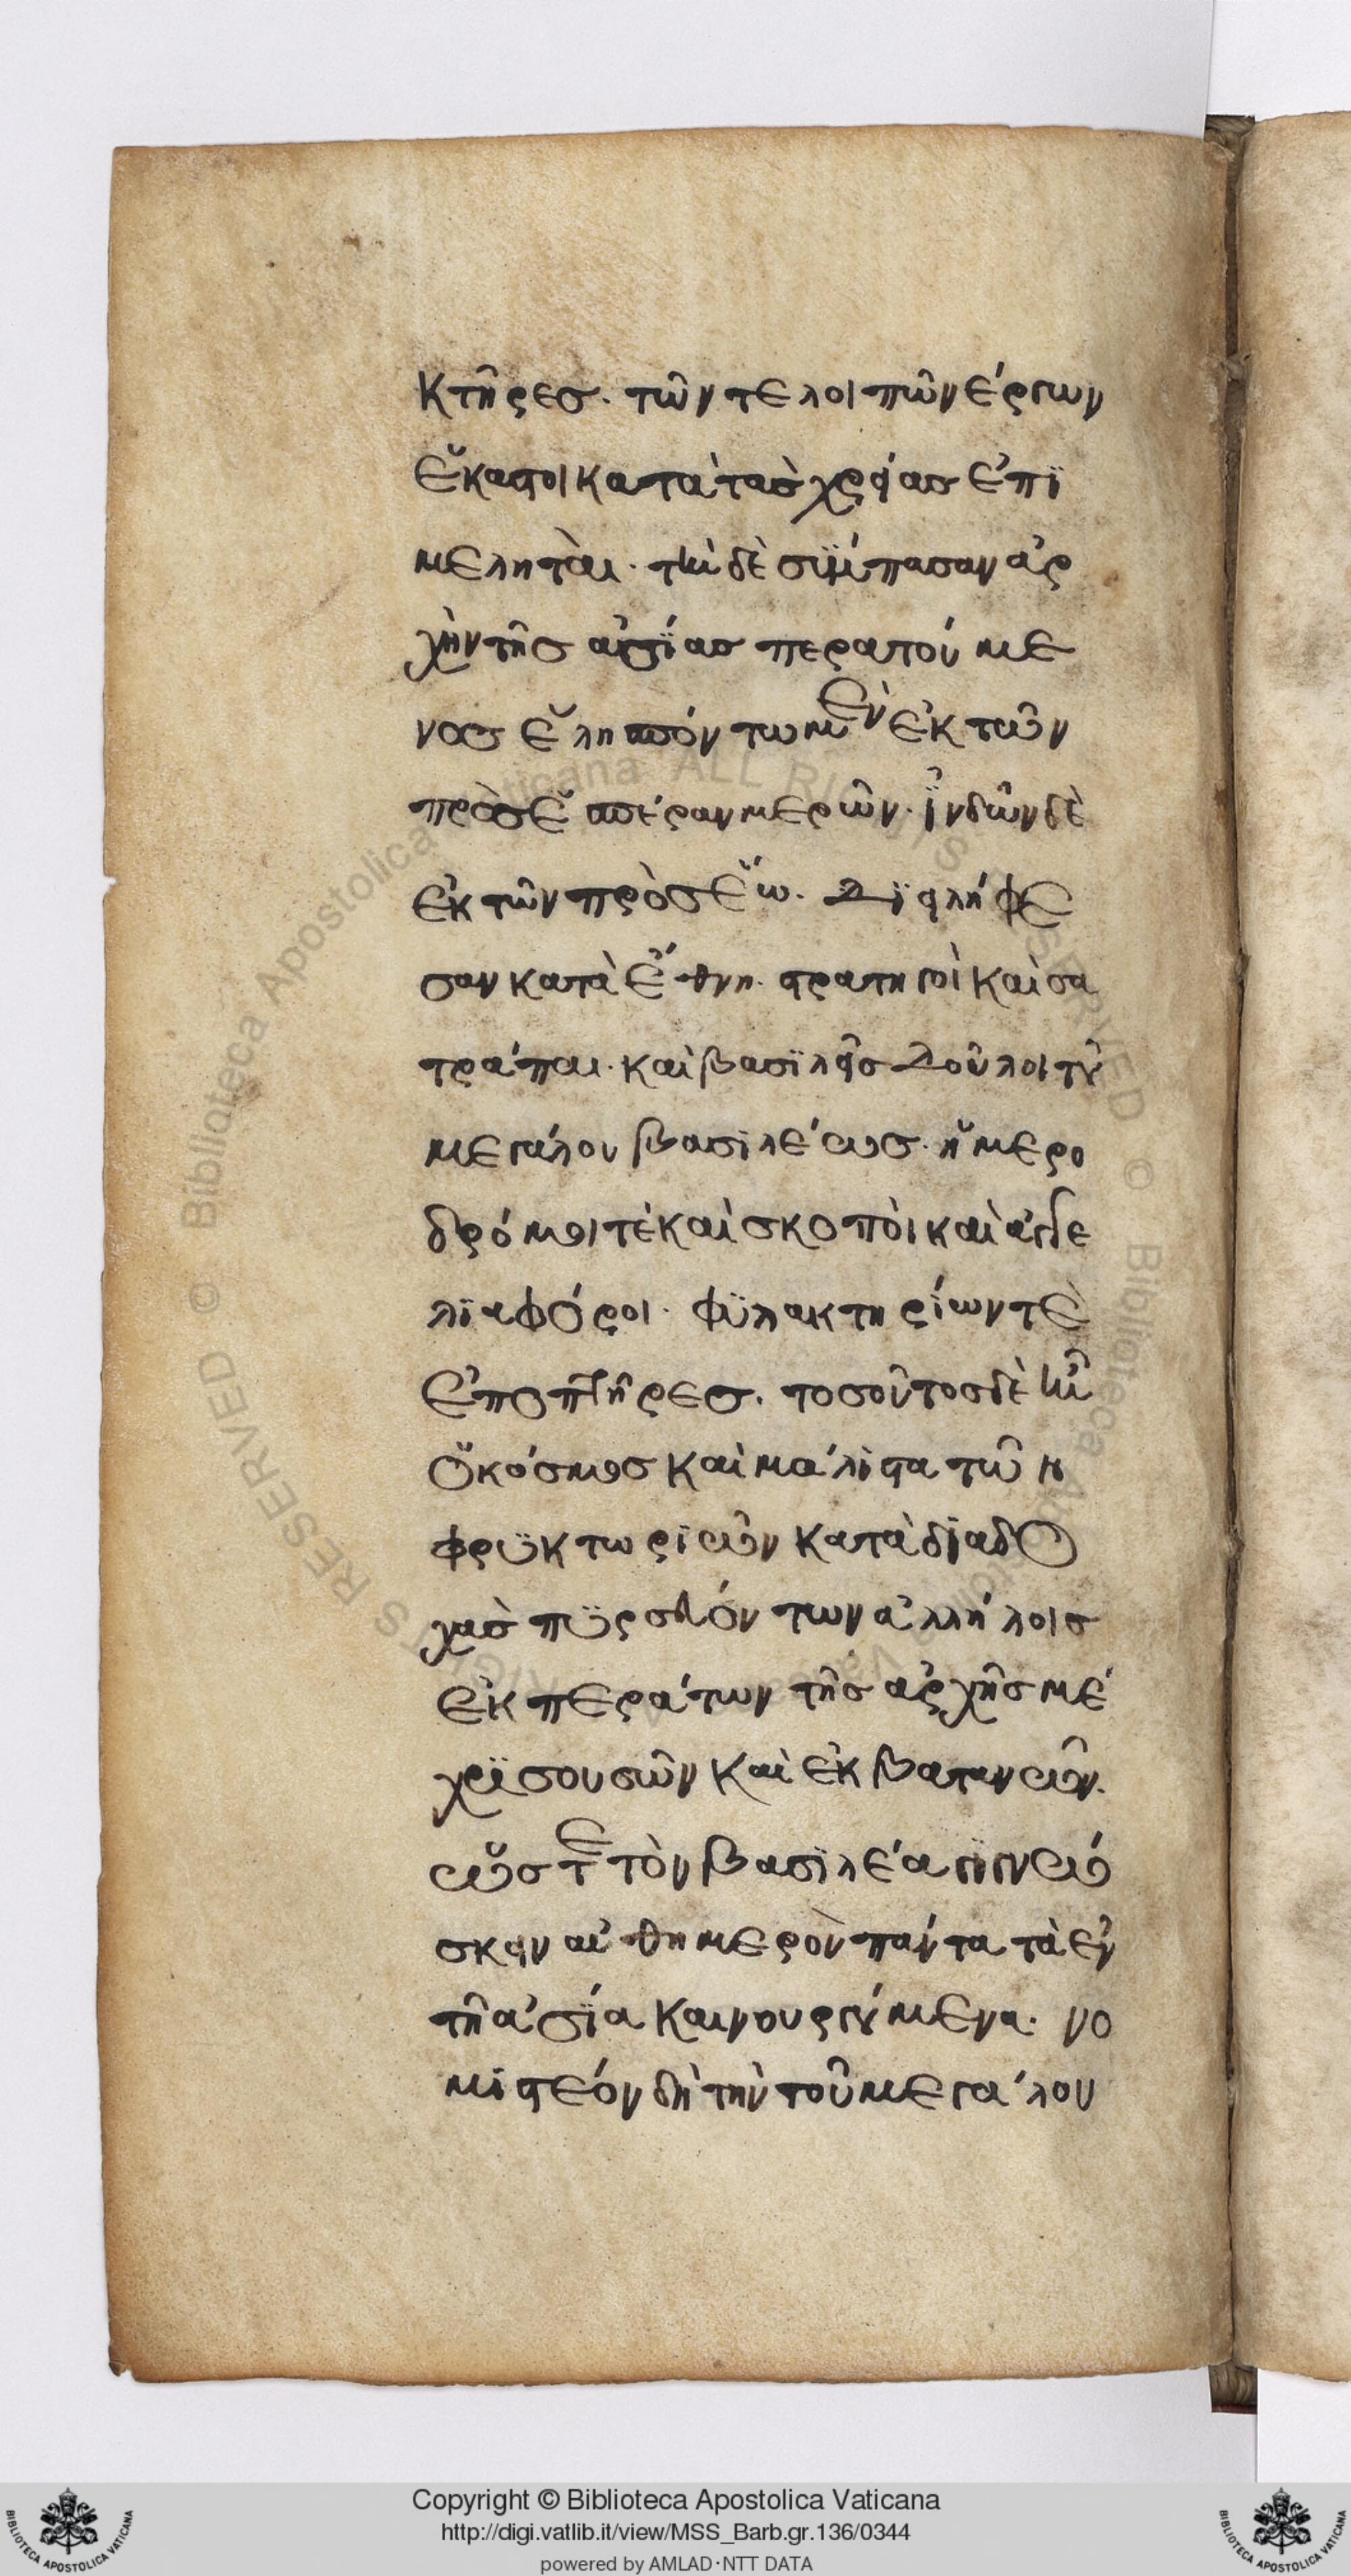 κτῆρες. τῶν τε λοιπῶν ἔργων
ἕκαστοι κατὰ τὰς χρείας ἐπϊ
μεληταὶ. τὴν δὲ σΰμπασαν ἀρ
χὴν τῆς ἀσΐας περατουμέ
νος ἑλλησπόντω μὲν ἐκ τῶν
πρὸς ἑσπέραν μερῶν. ϊ̓νδῶν δὲ
ἐκ τῶν πρὸς ἕω. Δϊειλήφε
σαν κατὰ ἔθνη. στρατηγοὶ καὶ σα
τράπαι. καὶ βασϊλεῖς Δοῦλοι τοῦ
μεγάλου βασϊλέως. ἡμερο
δρόμοι τὲ καὶ σκοποὶ καὶ ἀγγε
λϊαφόροι. φϋλακτηρίων τὲ
ἐποπτῆρες. τοσοῦτος δὲ ἦν
ὁ κόσμος καὶ μάλιστα τῶν
φρϋκτωριῶν κατὰ διαδο
χὰς πϋρσευόντων ἀλλήλοις
ἐκ περάτων τῆς ἀρχῆς μέ
χρϊ σουσῶν καὶ ἐκβατανῶν.
ὥστε τὸν βασϊλέα γϊγνώ
σκειν αὐθημερὸν πάντα τὰ ἐν
τῆ ἀσΐα καινουργούμενα. νο
μιστέον δὴ τὴν τοῦ μεγάλου
Copyright © Biblioteca Apostolica Vaticana
http://digi.vatlib.it/view/MSS_Barb.gr.136/0344
powered by AMLAD·NTT DATA